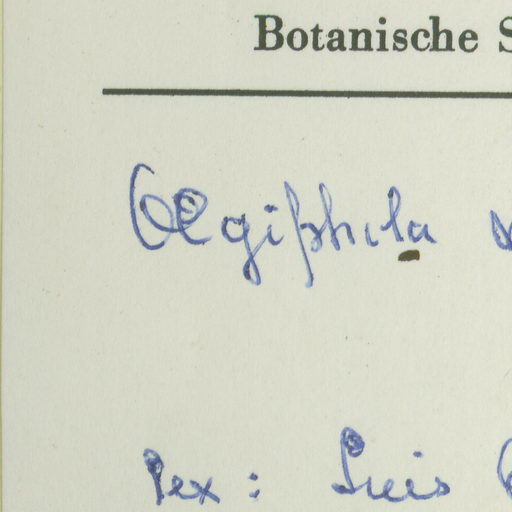 Botanische S
Aegiphila
Lex: Luis